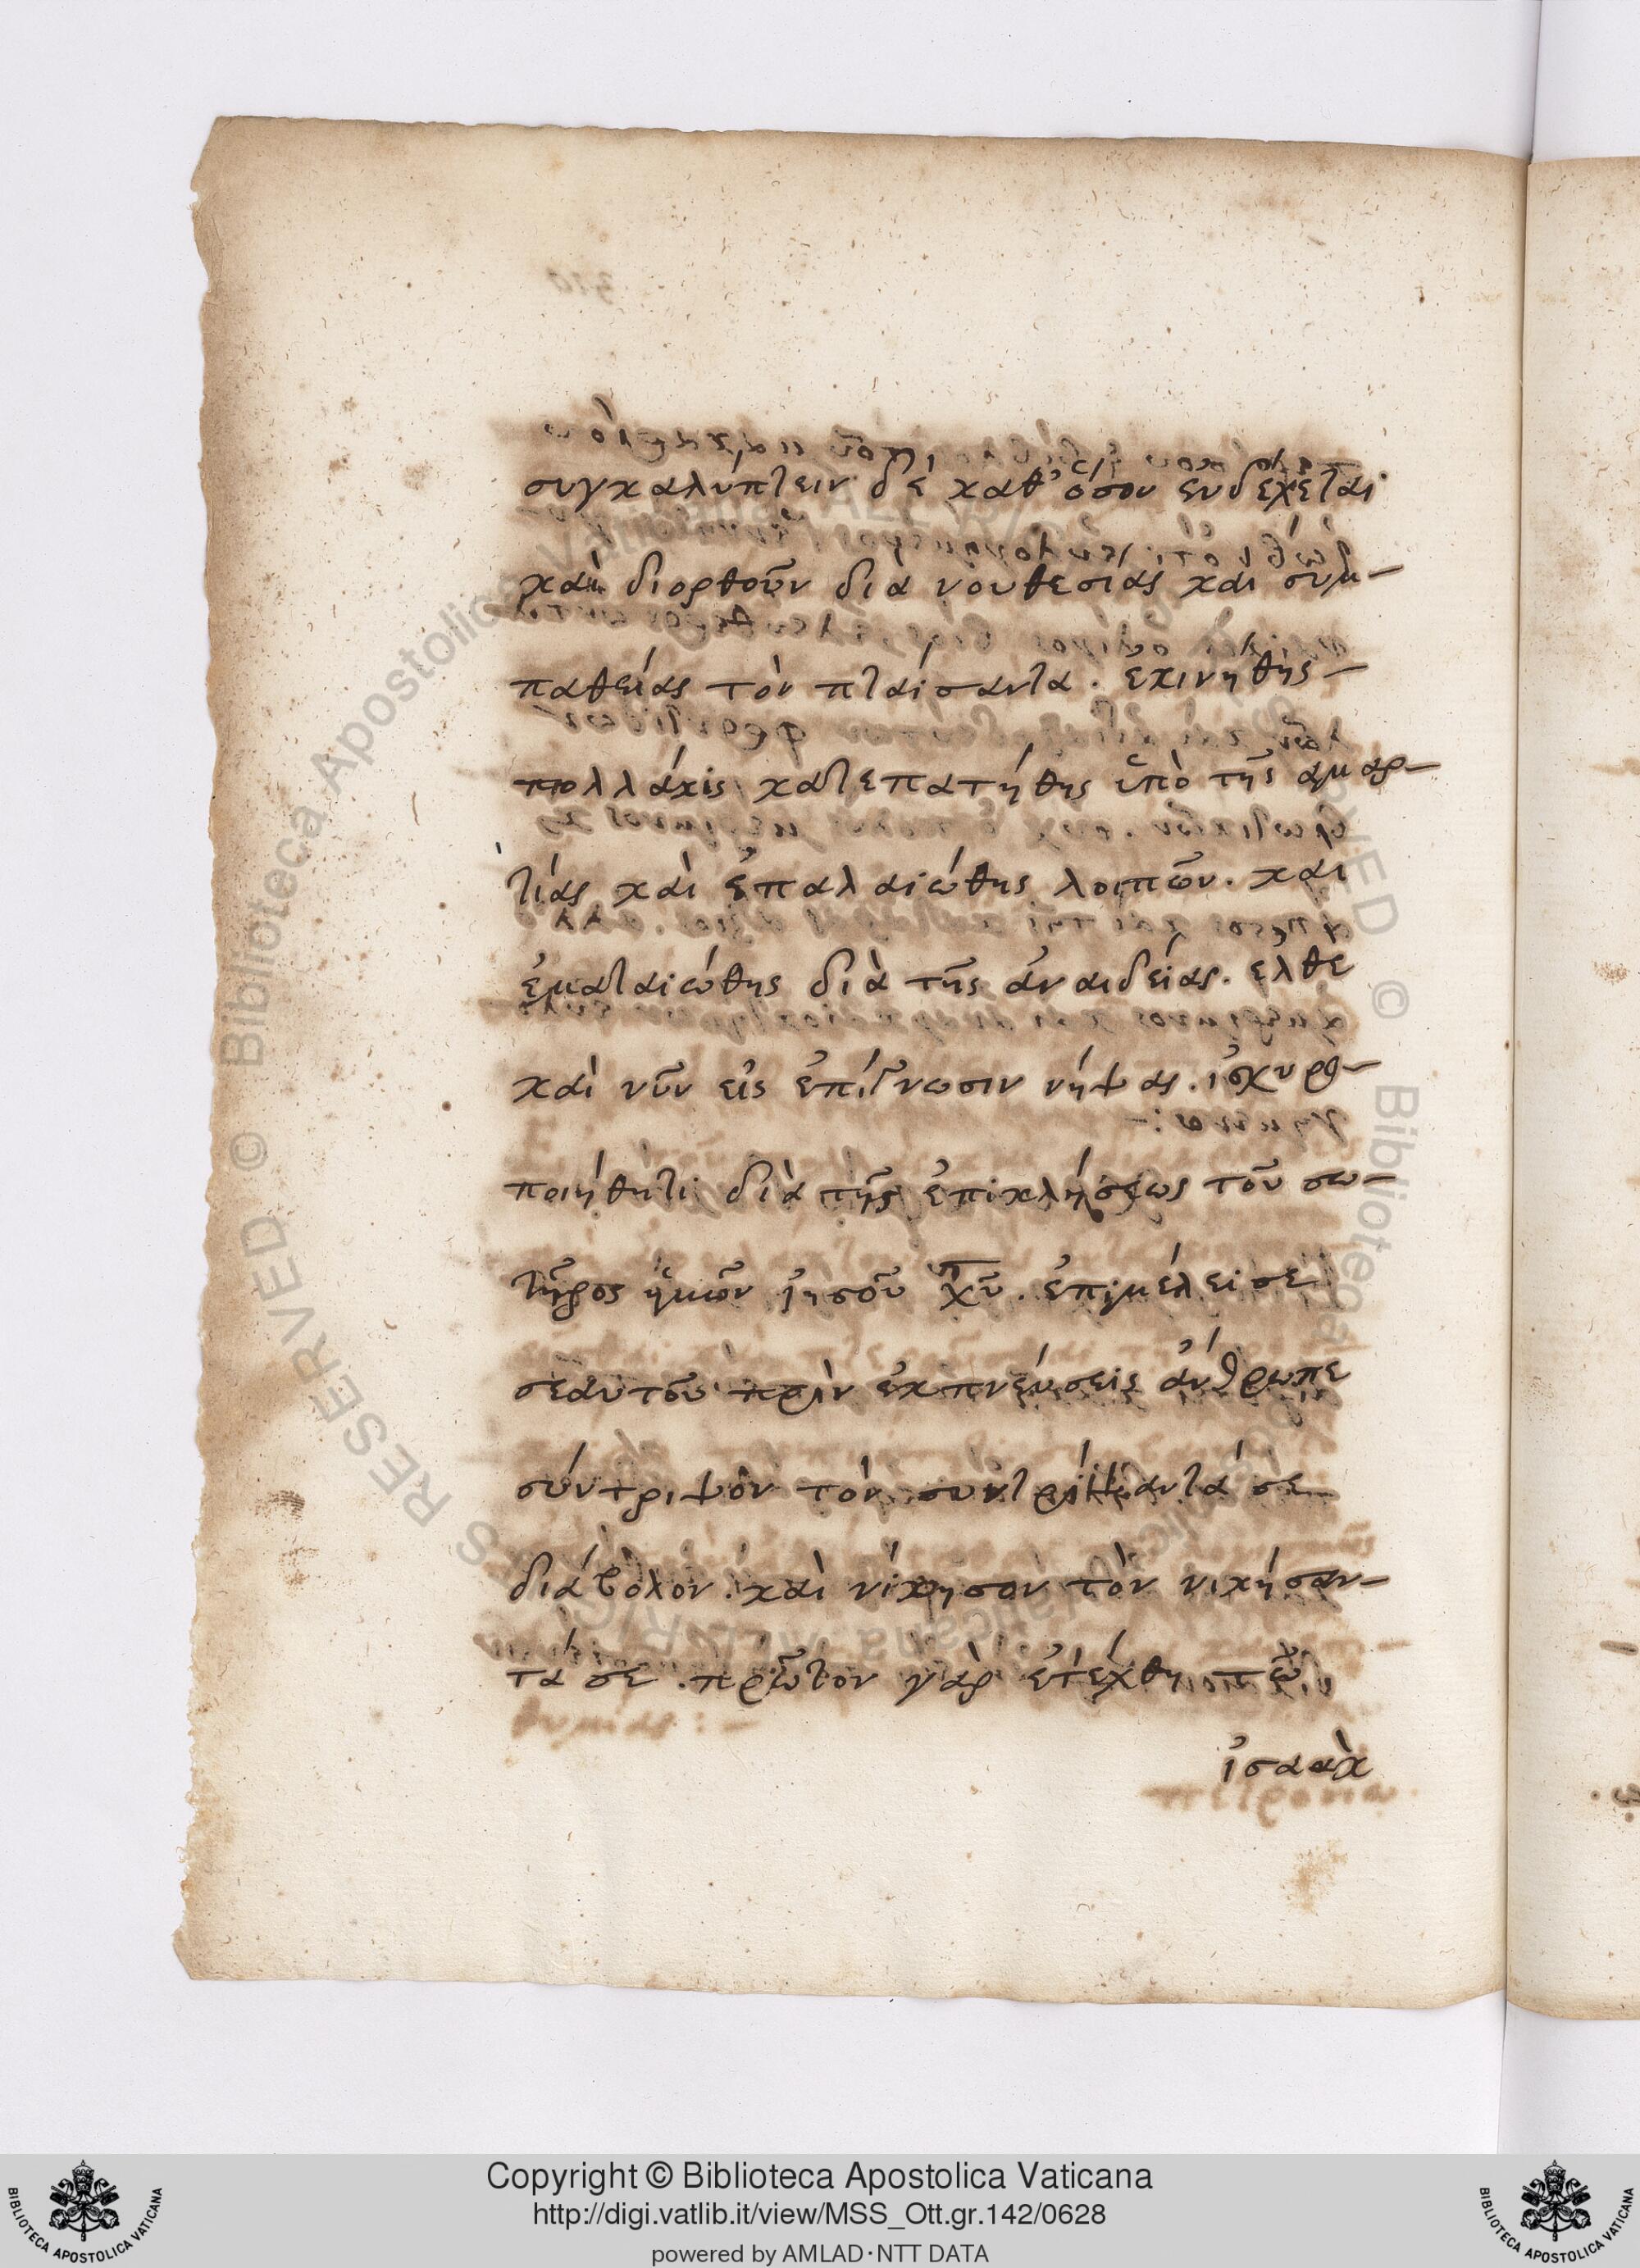 συγκαλύπτειν δὲ καθ' ὅσον ἐνδέχεται·
καὶ διορθοῦν διὰ νουθεσίας καὶ συμ-
παθείας τὸν πταίσαντα. ἐκινήθης-
πολλάκις κατεπατήθης ὑπὸ τῆς ἁμαρ-
τίας καὶ ἐπαλαιώθης λοιπὸν. καὶ
ἐματαιώθης διὰ τῆς ἀναιδείας. ἐλθὲ
καὶ νῦν εἰς ἐπίγνωσιν νήψας. ἰσχυρο-
ποιήθητι διὰ τῆς ἐπικλήσεως τοῦ σω-
τῆρος ἡμῶν ἰησοῦ χῦ. ἐπιμέλει σε
σεαυτοῦ πρὶν ἐκπνεύσεις ἄνθρωπε
σύντριψον τὸν συντρίψαντά σε
διάβολον. καὶ νίκησον τὸν νικήσαν-
τα σε. πρῶτον γὰρ ἐτέχθη τῷ
ἰσαὰκ
Copyright © Biblioteca Apostolica Vaticana
http://digi.vatlib.it/view/MSS_Ott.gr.142/0628
powered by AMLAD·NTT DATA
BIBLIOTECA APOSTOLICA VATICANA
BIBLIOTECA APOSTOLICA VATICANA